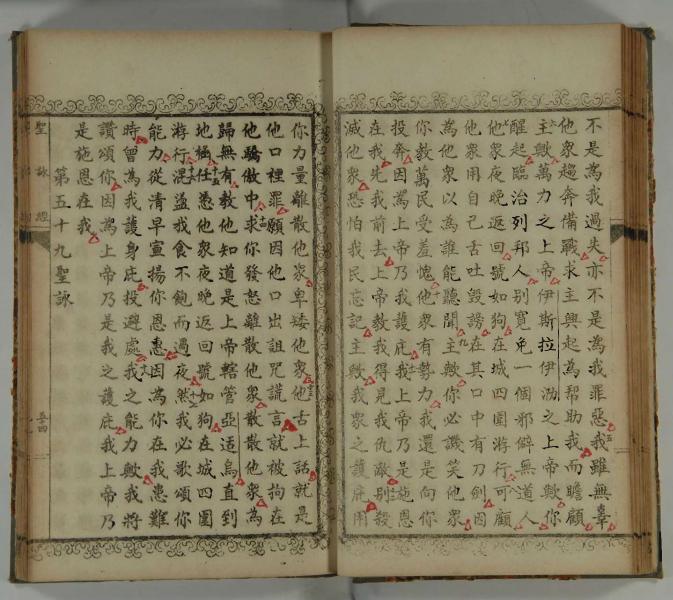 不是為我過失亦不是為我罪惡五我雖無辜
他衆趨奔備戰求主興起為幫助我而瞻顧
六主歟萬力之上帝伊斯拉伊泐之上帝歟你
醒起臨治列邦人別寬免一個邪僻無道人
七他衆夜晚返回號如狗在城四圍游行可顧
他衆用自己舌吐毀謗在其口中有刀劍因
為他衆以為誰能聽聞九主歟你必譏笑他衆
你教萬民受羞愧十他衆有勢力我還是向你
投奔因為上帝乃我護庇十一我上帝乃是施恩
在我先我前去上帝教我得見我仇敵十二別殺
滅他衆恐怕我民忘記主歟我衆之護庇用
你力量離散他衆卑矮他衆十三他舌上話就是
他口裡罪願因他口出詛咒謊言就被拘在
他驕傲中十四求你發怒離散他衆散散他衆為
歸無有教他知道是上帝轄管亞适烏直到
地極十五任憑他衆夜晚返回號如狗在城四圍
游行十六混盗找食不飽而過夜十七然我必歌頌你
能力從清早宣揚你恩惠因為你在我患難
時曾為我護身庇投避處十八我之能力歟我將
讚頌你因為上帝乃是我之護庇我上帝乃
是施恩在我
第五十九聖詠
聖詠經
五十四